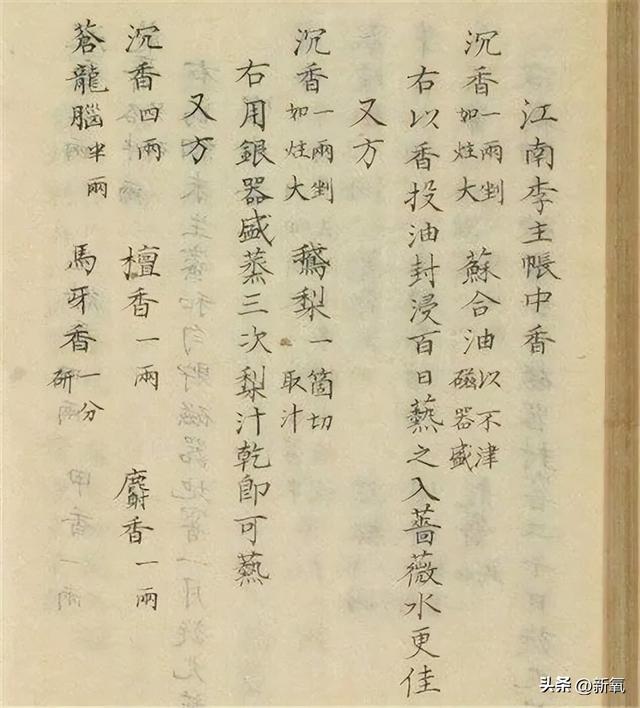 江南李主帳中香
沉香一兩剉如炷大 蘇合油以不津磁器盛
右以香投油封浸百日爇之入薔薇水更佳
又方
沉香一兩剉如炷大 鵝梨一箇切取汁
右用銀器盛蒸三次梨汁乾即可爇
又方
沉香四兩 檀香一兩 麝香一兩
蒼龍腦半兩 馬牙香一分研
头条 @新氧